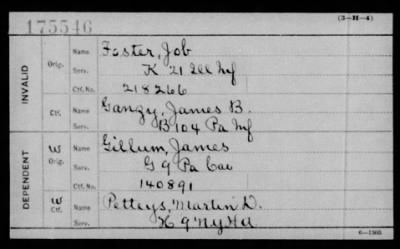 175546
(3-H-4)
INVALID
Orig. Name Foster, Job
Serv. K 21 Ill Inf
Ctf. No. 218266
Ctf. Name Gangy, James B.
Serv. B 104 Pa Inf
DEPENDENT
W Orig. Name Gillum, James
Serv. G 9 Pa Cav
Ctf. No. 140891
W Ctf. Name Petteys, Martin D.
Serv. K 9 NY HA
6-1305